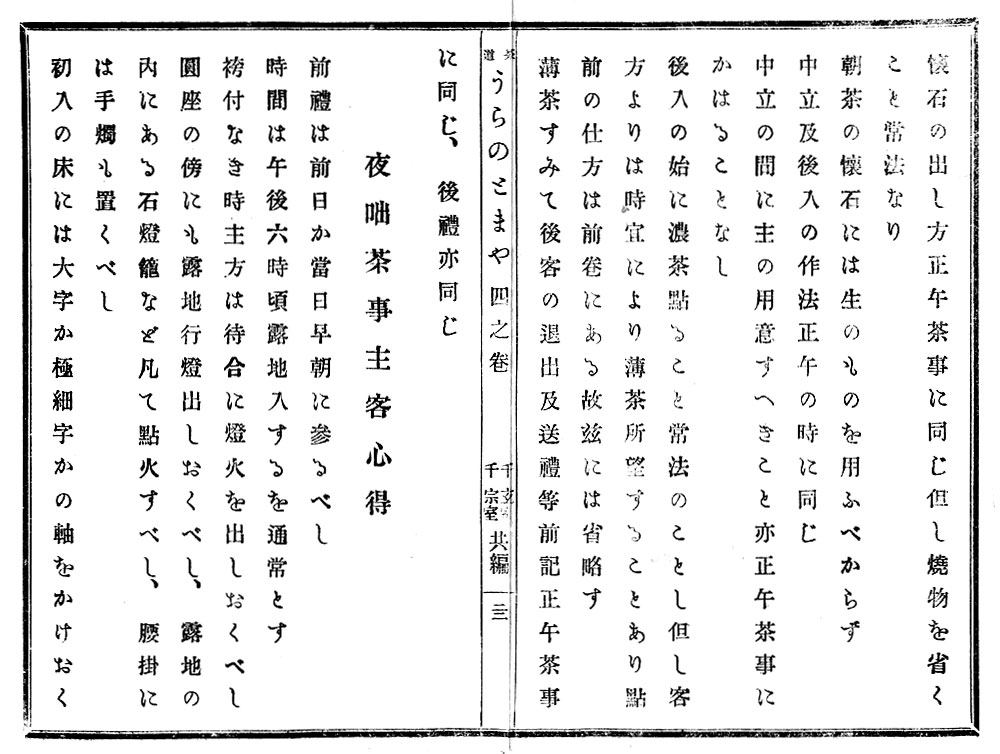 懷石の出し方正午茶事に同じ但し燒物を省く
こと常法なり
朝茶の懷石には生のものを用ふべからず
中立及後入の作法正午の時に同じ
中立の間に主の用意すへきこと亦正午茶事に
かはることなし
後入の始に濃茶點ることを常法のことし但し客
方よりは時宜により薄茶所望することあり點
前の仕方は前卷にある故玆には省略す
薄茶すみて後客の退出及送禮等前記正午茶事
茶道うらのとまや 四之卷 千宗室共編 三
に同じ、後禮亦同じ
夜咄茶事主客心得
前禮は前日か當日早朝に參るべし
時間は午後六時頃露地入するを通常とす
袴付なき時主方は待合に燈火を出しおくべし
圓座の傍にも露地行燈出しおくべし、露地の
內にある石燈籠など凡て點火すべし、腰掛に
は手燭も置くべし
初入の床には大字か極細字かの軸をかけおく